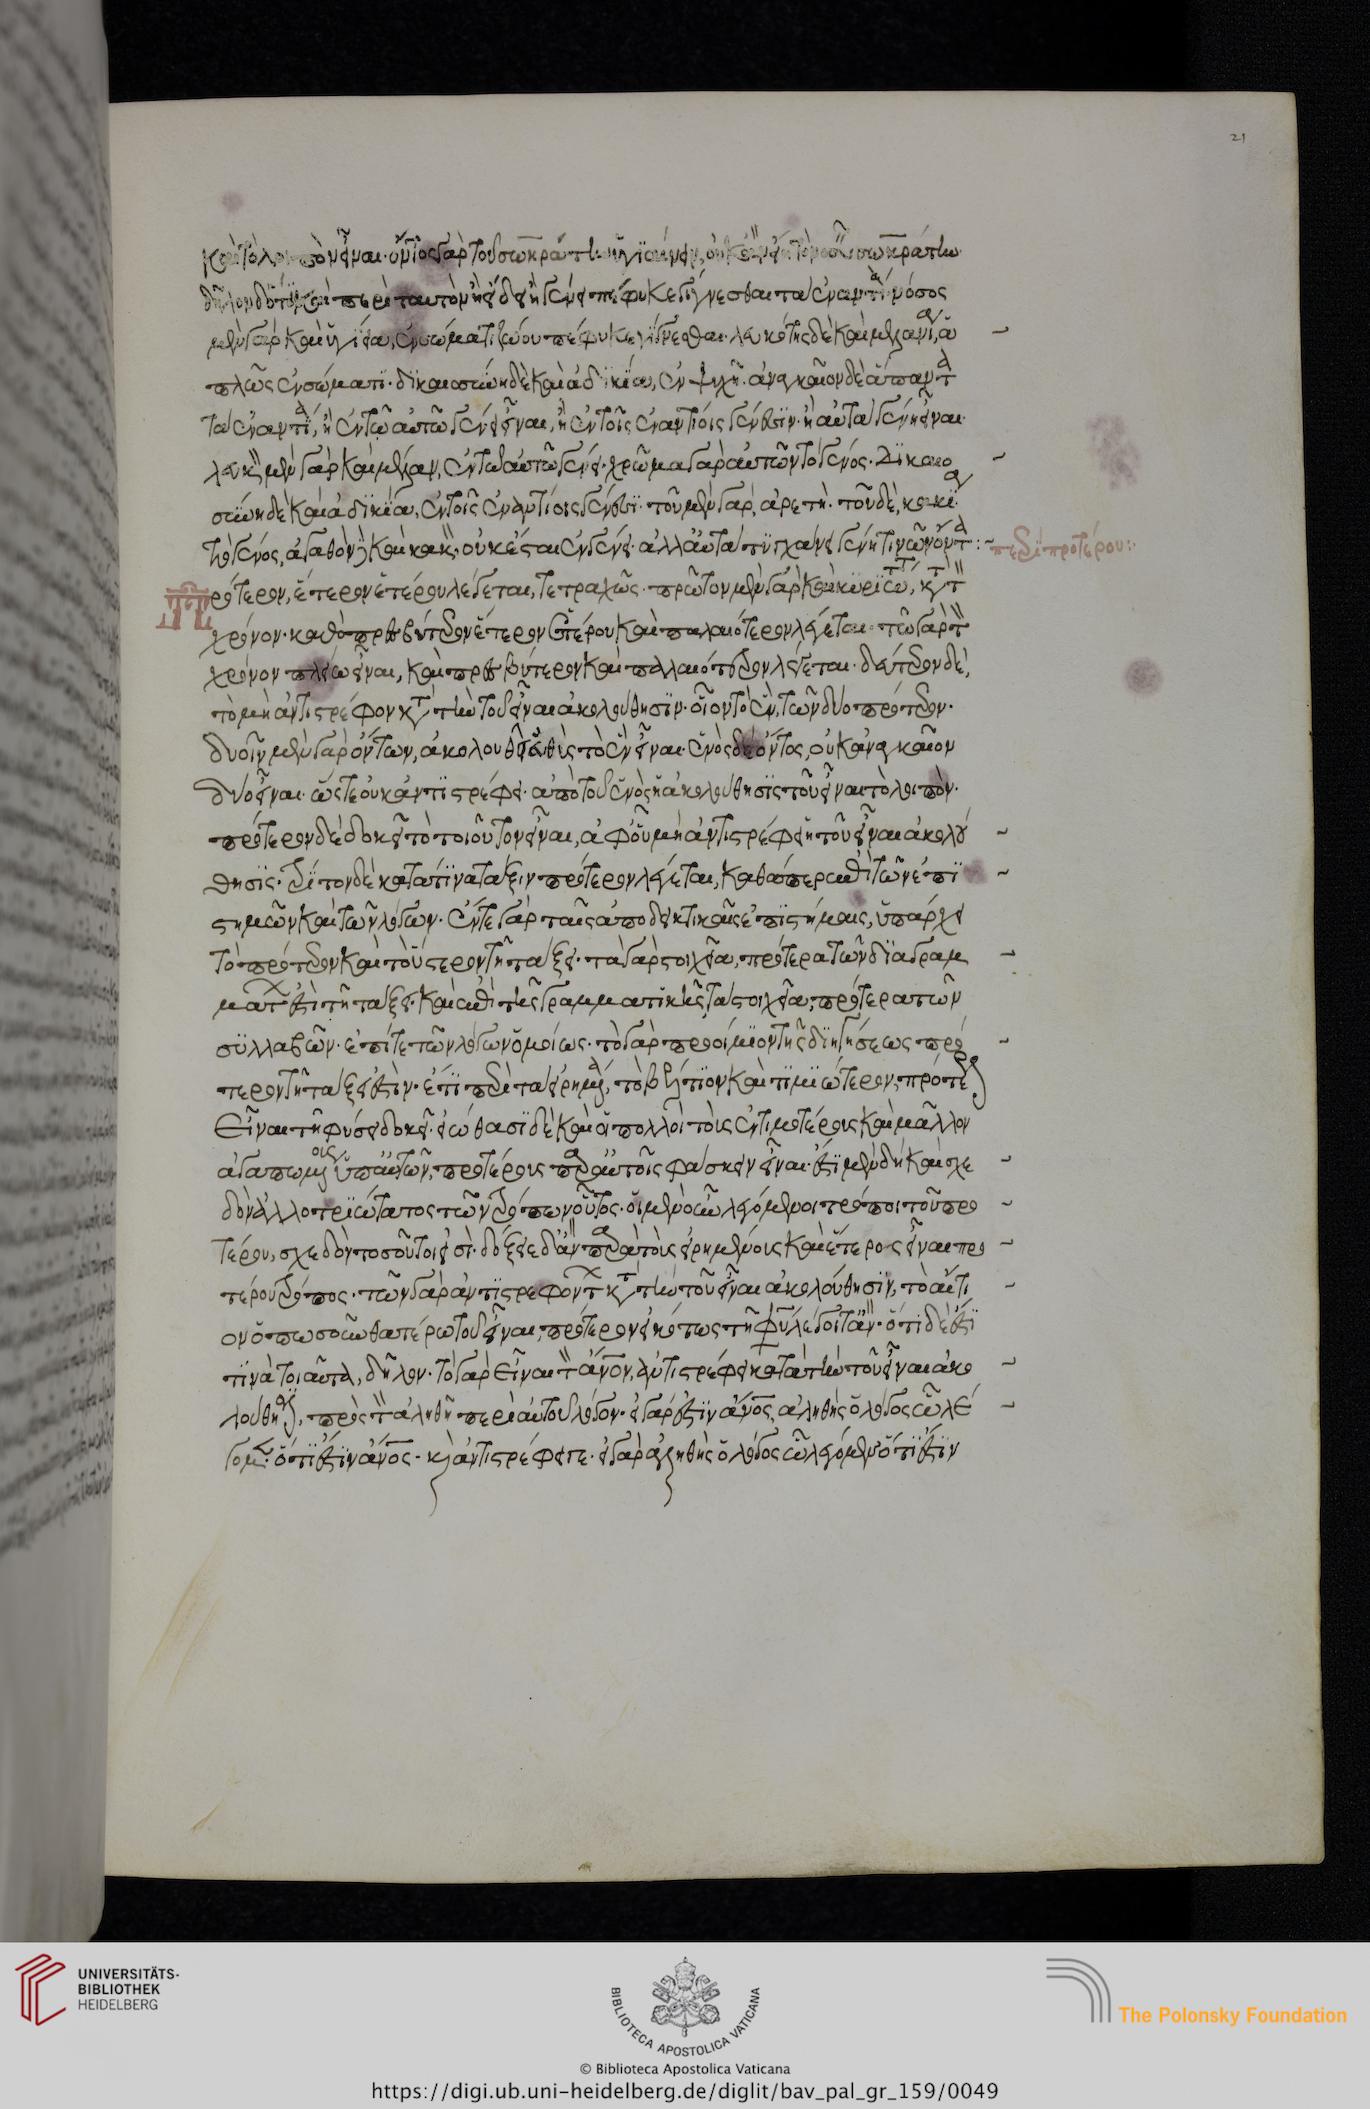 καὶ τὸ λοιπὸν εἶναι· ὄντος γὰρ τοῦ σωκράτην ὑγιαίνειν, οὐκ ἂν εἴη τὸ νοσεῖν σωκράτην
δῆλον δὲ ὅτι καὶ περὶ ταυτὸν ἢ εἴδει ἢ γένει πέφυκε γίγνεσθαι τὰ ἐναντία· νόσος
μὲν γὰρ καὶ ὑγίεια, ἐν σώματι ζώου πέφυκε γίνεσθαι· λευκότης δὲ καὶ μελανία, ἁ
πλῶς ἐν σώματι· δικαιοσύνη δὲ καὶ ἀδικία, ἐν ψυχῆ· ἀναγκαῖον δὲ ἅπαντα
τὰ ἐναντία, ἢ ἐν τῶ αὐτῶ γένει εἶναι, ἢ ἐν τοῖς ἐναντίοις γένεσιν· ἢ αὐτὰ γένη εἶναι·
λευκὸν μὲν γὰρ καὶ μέλαν, ἐν τῶ αὐτῶ γένει· χρῶμα γὰρ αὐτῶν τὸ γένος· Δικαιο
σύνη δὲ καὶ ἀδικία, ἐν τοῖς ἐναντίοις γένεσι· τοῦ μὲν γὰρ, ἀρετὴ· τοῦ δὲ, κακία
τὸ γένος, ἀγαθὸν δὲ καὶ κακὸν· οὐκ ἔσται ἐν γένει· ἀλλ' αὐτὰ τυγχάνει γένη τινῶν ὄντα :~
περὶ προτέρου :~
Πρότερον, ἕτερον ἑτέρου λέγεται, τετραχῶς· πρῶτον μὲν γὰρ καὶ κυριώτατα, κατὰ τὸν
χρόνον· καθὸ πρεσβύτερον ἕτερον ἑτέρου καὶ παλαιότερον λέγεται· τῶ γὰρ τὸν
χρόνον πλείω εἶναι, καὶ πρεσβύτερον καὶ παλαιότερον λέγεται· δεύτερον δὲ,
τὸ μὴ ἀντιστρέφον κατὰ τὴν τοῦ εἶναι ἀκολούθησιν· οἷον τὸ ἓν, τῶν δύο πρότερον·
δυοῖν μὲν γὰρ ὄντων, ἀκολουθεῖ εὐθὺς τὸ ἓν εἶναι· ἑνὸς δὲ ὄντος, οὐκ ἀναγκαῖον
δύο εἶναι· ὥστε οὐκ ἀντιστρέφει ἀπὸ τοῦ ἑνὸς ἡ ἀκολούθησις τοῦ εἶναι τὸ λοιπὸν·
πρότερον δὲ δοκεῖ τὸ τοιοῦτον εἶναι, ἀφ' οὗ μὴ ἀντιστρέφει ἡ τοῦ εἶναι ἀκολού
θησις· τρίτον δὲ κατά τινα τάξιν πρότερον λέγεται, καθάπερ ἐπὶ τῶν ἐπι
στημῶν καὶ τῶν λόγων· ἔν τε γὰρ ταῖς ἀποδεικτικαῖς ἐπιστήμαις, ὑπάρχει
τὸ πρότερον καὶ τὸ ὕστερον τῆ τάξει· τὰ γὰρ στοιχεῖα, πρότερα τῶν διαγραμ
μάτων ἐστὶ τῆ τάξει· καὶ ἐπὶ τῆς γραμματικῆς τὰ στοιχεῖα, πρότερα τῶν
συλλαβῶν· ἐπί τε τῶν λόγων ὁμοίως· τὸ γὰρ προοίμιον τῆς διηγήσεως πρό
τερον τῆ τάξει ἐστὶν· ἔτι παρὰ τὰ εἰρημένα, τὸ βέλτιον καὶ τιμιώτερον, πρότερον
εἶναι τῆ φύσει δοκεῖ· εἰώθασι δὲ καὶ οἱ πολλοὶ τοὺς ἐντιμοτέρους καὶ μᾶλλον
ἀγαπωμένους ὑπ' αὐτῶν, προτέρους παρ' αὐτοῖς φάσκειν εἶναι· ἔστι μὲν δὴ καὶ σχε
δὸν ἀλλοτριώτατος τῶν τρόπων οὗτος· οἱ μὲν οὖν λεγόμενοι τρόποι τοῦ προ
τέρου, σχεδὸν τοσοῦτοι εἰσὶ· δόξειε δ' ἂν παρὰ τοὺς εἰρημένους καὶ ἕτερος εἶναι προ
τέρου τρόπος· τῶν γὰρ ἀντιστρεφόντων κατὰ τὴν τοῦ εἶναι ἀκολούθησιν, τὸ αἴτι
ον ὁπωσοῦν θατέρω τοῦ εἶναι, πρότερον εἰκότως τῆ φύσει λέγοιτ' ἂν· ὅτι δὲ ἔστι
τινὰ τοιαῦτα, δῆλον· τὸ γὰρ εἶναι τὸν ἄνον, ἀντιστρέφει κατὰ τὴν τοῦ εἶναι ἀκο
λούθησιν, πρὸς τὸν ἀληθῆ περὶ αὐτοῦ λόγον· εἰ γὰρ ἔστιν ἄνος, ἀληθὴς ὁ λόγος ὧ λέ
γομεν ὅτι ἔστιν ἄνος· καὶ ἀντιστρέφει γε· εἰ γὰρ ἀληθὴς ὁ λόγος ὧ λέγομεν ὅτι ἔστιν
21
UNIVERSITÄTS-
BIBLIOTHEK
HEIDELBERG
BIBLIOTECA APOSTOLICA VATICANA
The Polonsky Foundation
© Biblioteca Apostolica Vaticana
https://digi.ub.uni-heidelberg.de/diglit/bav_pal_gr_159/0049